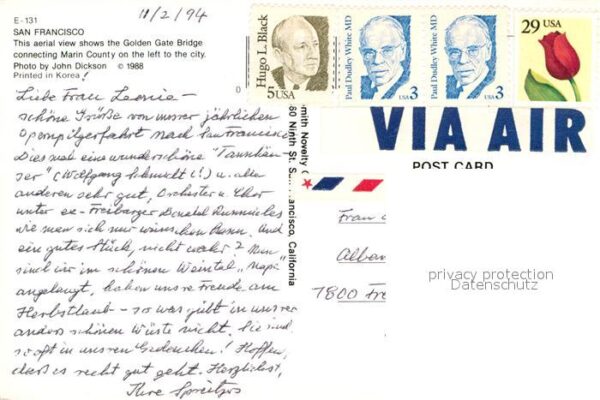 11/2/94
E-131
SAN FRANCISCO
This aerial view shows the Golden Gate Bridge
connecting Marin County on the left to the city.
Photo by John Dickson © 1988
Printed in Korea!
Liebe Frau Leonie -
schöne Grüße von unsrer jährlichen
Opernpilgerfahrt nach San Francisco
Dies mal eine wunderschöne "Tannhäu-
ser" (Wolfgang Schmidt (!) u. alle
anderen sehr gut, Orchester u. Chor
unter ex-Freiburger Donald Runnicles
wie man sich nur wünschen kann. Und
ein gutes Stück, nicht wahr? Nun
sind wir im schönen Weintal "Napa"
angelangt, haben unsre Freude am
Herbstlaub - so was gibt's in unsrer
anders schönen Wüste nicht. Sie sind
so oft in unsren Gedanken! Hoffen,
daß es recht gut geht. Herzlichst,
Ihre
Hugo L. Black
5 USA
Paul Dudley White MD
USA 3
Paul Dudley White MD
USA 3
29 USA
VIA AIR
POST CARD
Smith Novelty
80 Ninth St. San Francisco, California
Frau
Alban
7800 Fre
privacy protection
Datenschutz